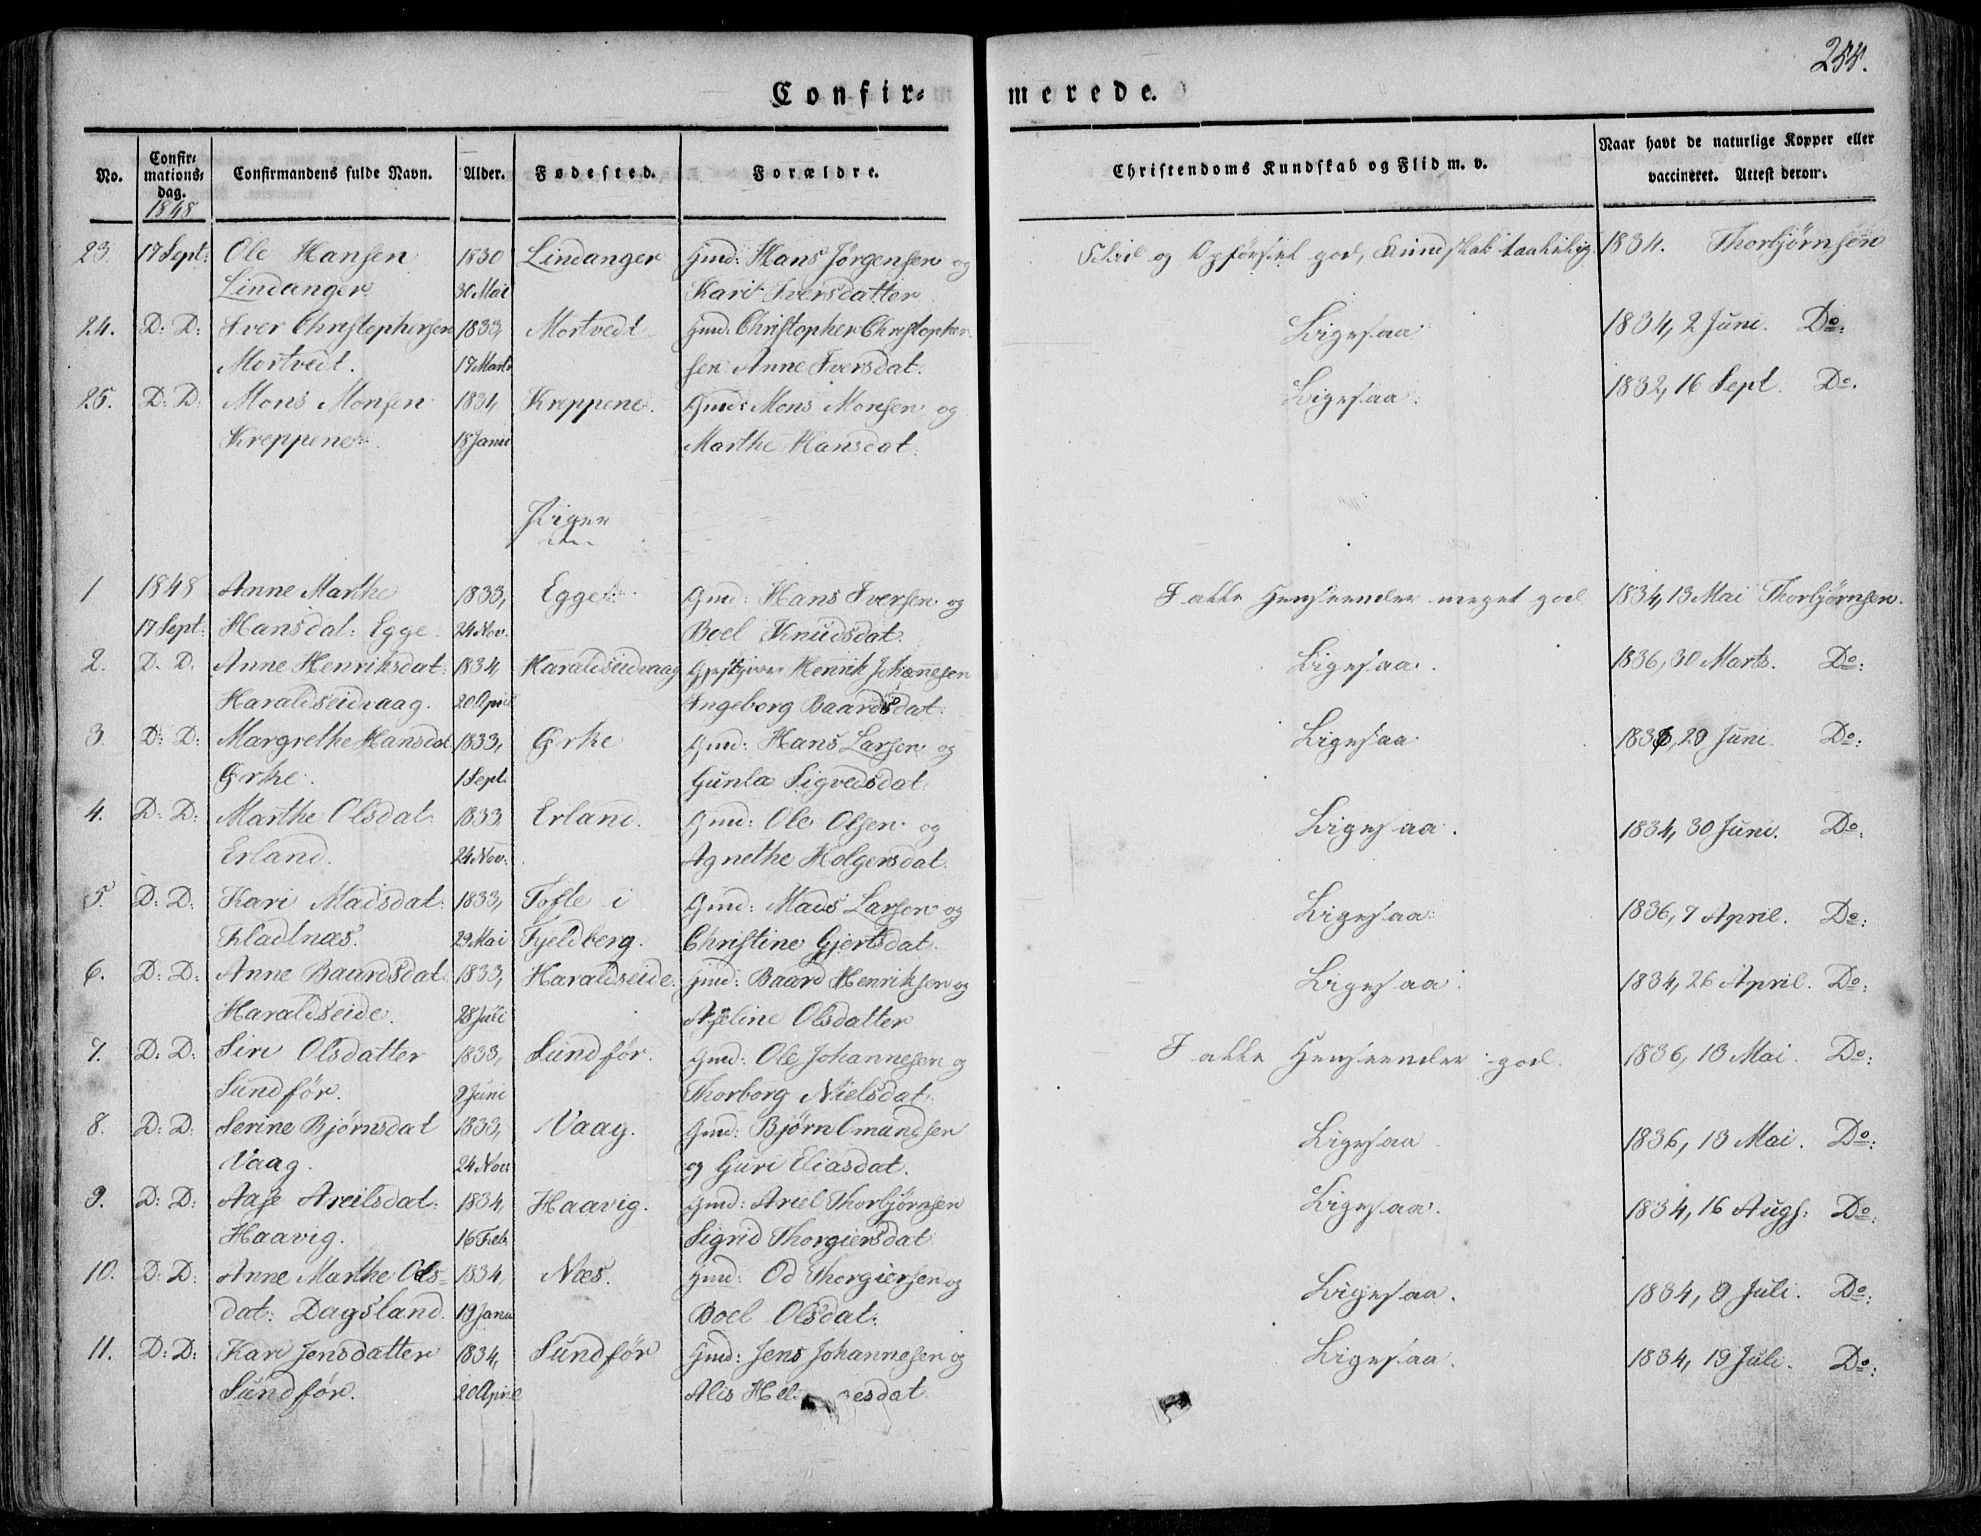 255.
Confir=
merede.
No.
Confir=
mations=
dag.
Confirmandens fulde Navn.
Alder.
Fødested.
Forældre.
Christendoms Kundskab og Flid m. v.
Naar havt de naturlige Kopper eller
vaccineret. Attest derom.
1848
23. 17 Sept: Ole Hansen 1830 Lindanger Gmd: Hans Jørgensen og Flid og Opførsel god, Kundskab taalelig. 1834. Thorbjørnsen
Lindanger. 30 Mai Kari Iversdatter
24. D: D: Iver Christophersen 1833, Mortvedt Gmd: Christopher Christopher- Ligesaa 1834, 2 Juni. Do:
Mortvedt. 17 Marts sen Anne Iversdat.
25. D: D. Mons Monsen 1831, Kreppene. Gmd: Mons Monsen og Ligesaa. 1832, 16 Sept. Do.
Kreppene. 18 Janu Marthe Hansdat.
Piger
1 1848 Anne Marthe 1833, Egge Gmd: Hans Iversen og I alle Henseender meget god 1834, 13 Mai Thorbjørnsen.
17 Sept: Hansdat: Egge. 24 Nov. Boel Knudsdat.
2. D: D: Anne Henriksdat: 1834, Haraldseidvaag Gjestgiver Henrik Johannesen Ligesaa. 1836, 30 Marts. Do:
Haraldseidvaag. 20 April Ingeborg Baardsdat.
3 D: D: Margrethe Hansdat 1833, Ørke Gmd: Hans Larsen og Ligesaa 1836, 29 Juni. Do:
Ørke. 1 Sept. Gunla Sigvedsdat.
4. D: D: Marthe Olsdat. 1833. Erland. Gmd: Ole Olsen og Ligesaa. 1834, 30 Juni. Do:
Erland. 24 Nov: Agnethe Holgersdat.
5. D: D: Kari Madsdat: 1833, Tofte i Gmd: Mads Larsen og Ligesaa: 1836, 7 April. Do:
Fladtnæs. 29 Mai Fjeldberg. Christine Gjertsdat.
6. D: D: Anne Baardsdat. 1833, Haraldseide. Gmd: Baard Henriksen og Ligesaa. 1834, 26 April. Do:
Haraldseide. 28 Juli Olsdatter
7. D: D: Siri Olsdatter 1833, Sundfør. Gmd: Ole Johannesen og I alle Henseender god. 1836, 13 Mai. Do:
Sundfør. 9 Juni Thorborg Nielsdat.
8. D: D: Serine Bjørnsdat 1833, Vaag. Gmd: Bjørn Omundsen Ligesaa 1836, 13 Mai. Do:
Vaag. 24 Nov og Guri Eliasdat.
9. D: D: Aase Areilsdat: 1834, Haavig. Gmd: Ariel Thorbjørnsen Ligesaa. 1834, 16 Augs: Do:
Haavig. 16 Feb. Sigrid Thorgiersdat
10. D: D: Anne Marthe Ods= 1834, Næs. Gmd: Od Thorgiersen og Ligesaa. 1834, 9 Juli. Do:
dat: Dagsland. 19 Janu Boel Olsdat.
11. D: D: Kari Jensdatter 1834, Sundfør Gmd: Jens Johannesen og Ligesaa. 1834, 19 Juli. Do:
Sundfør. 20 April Alis